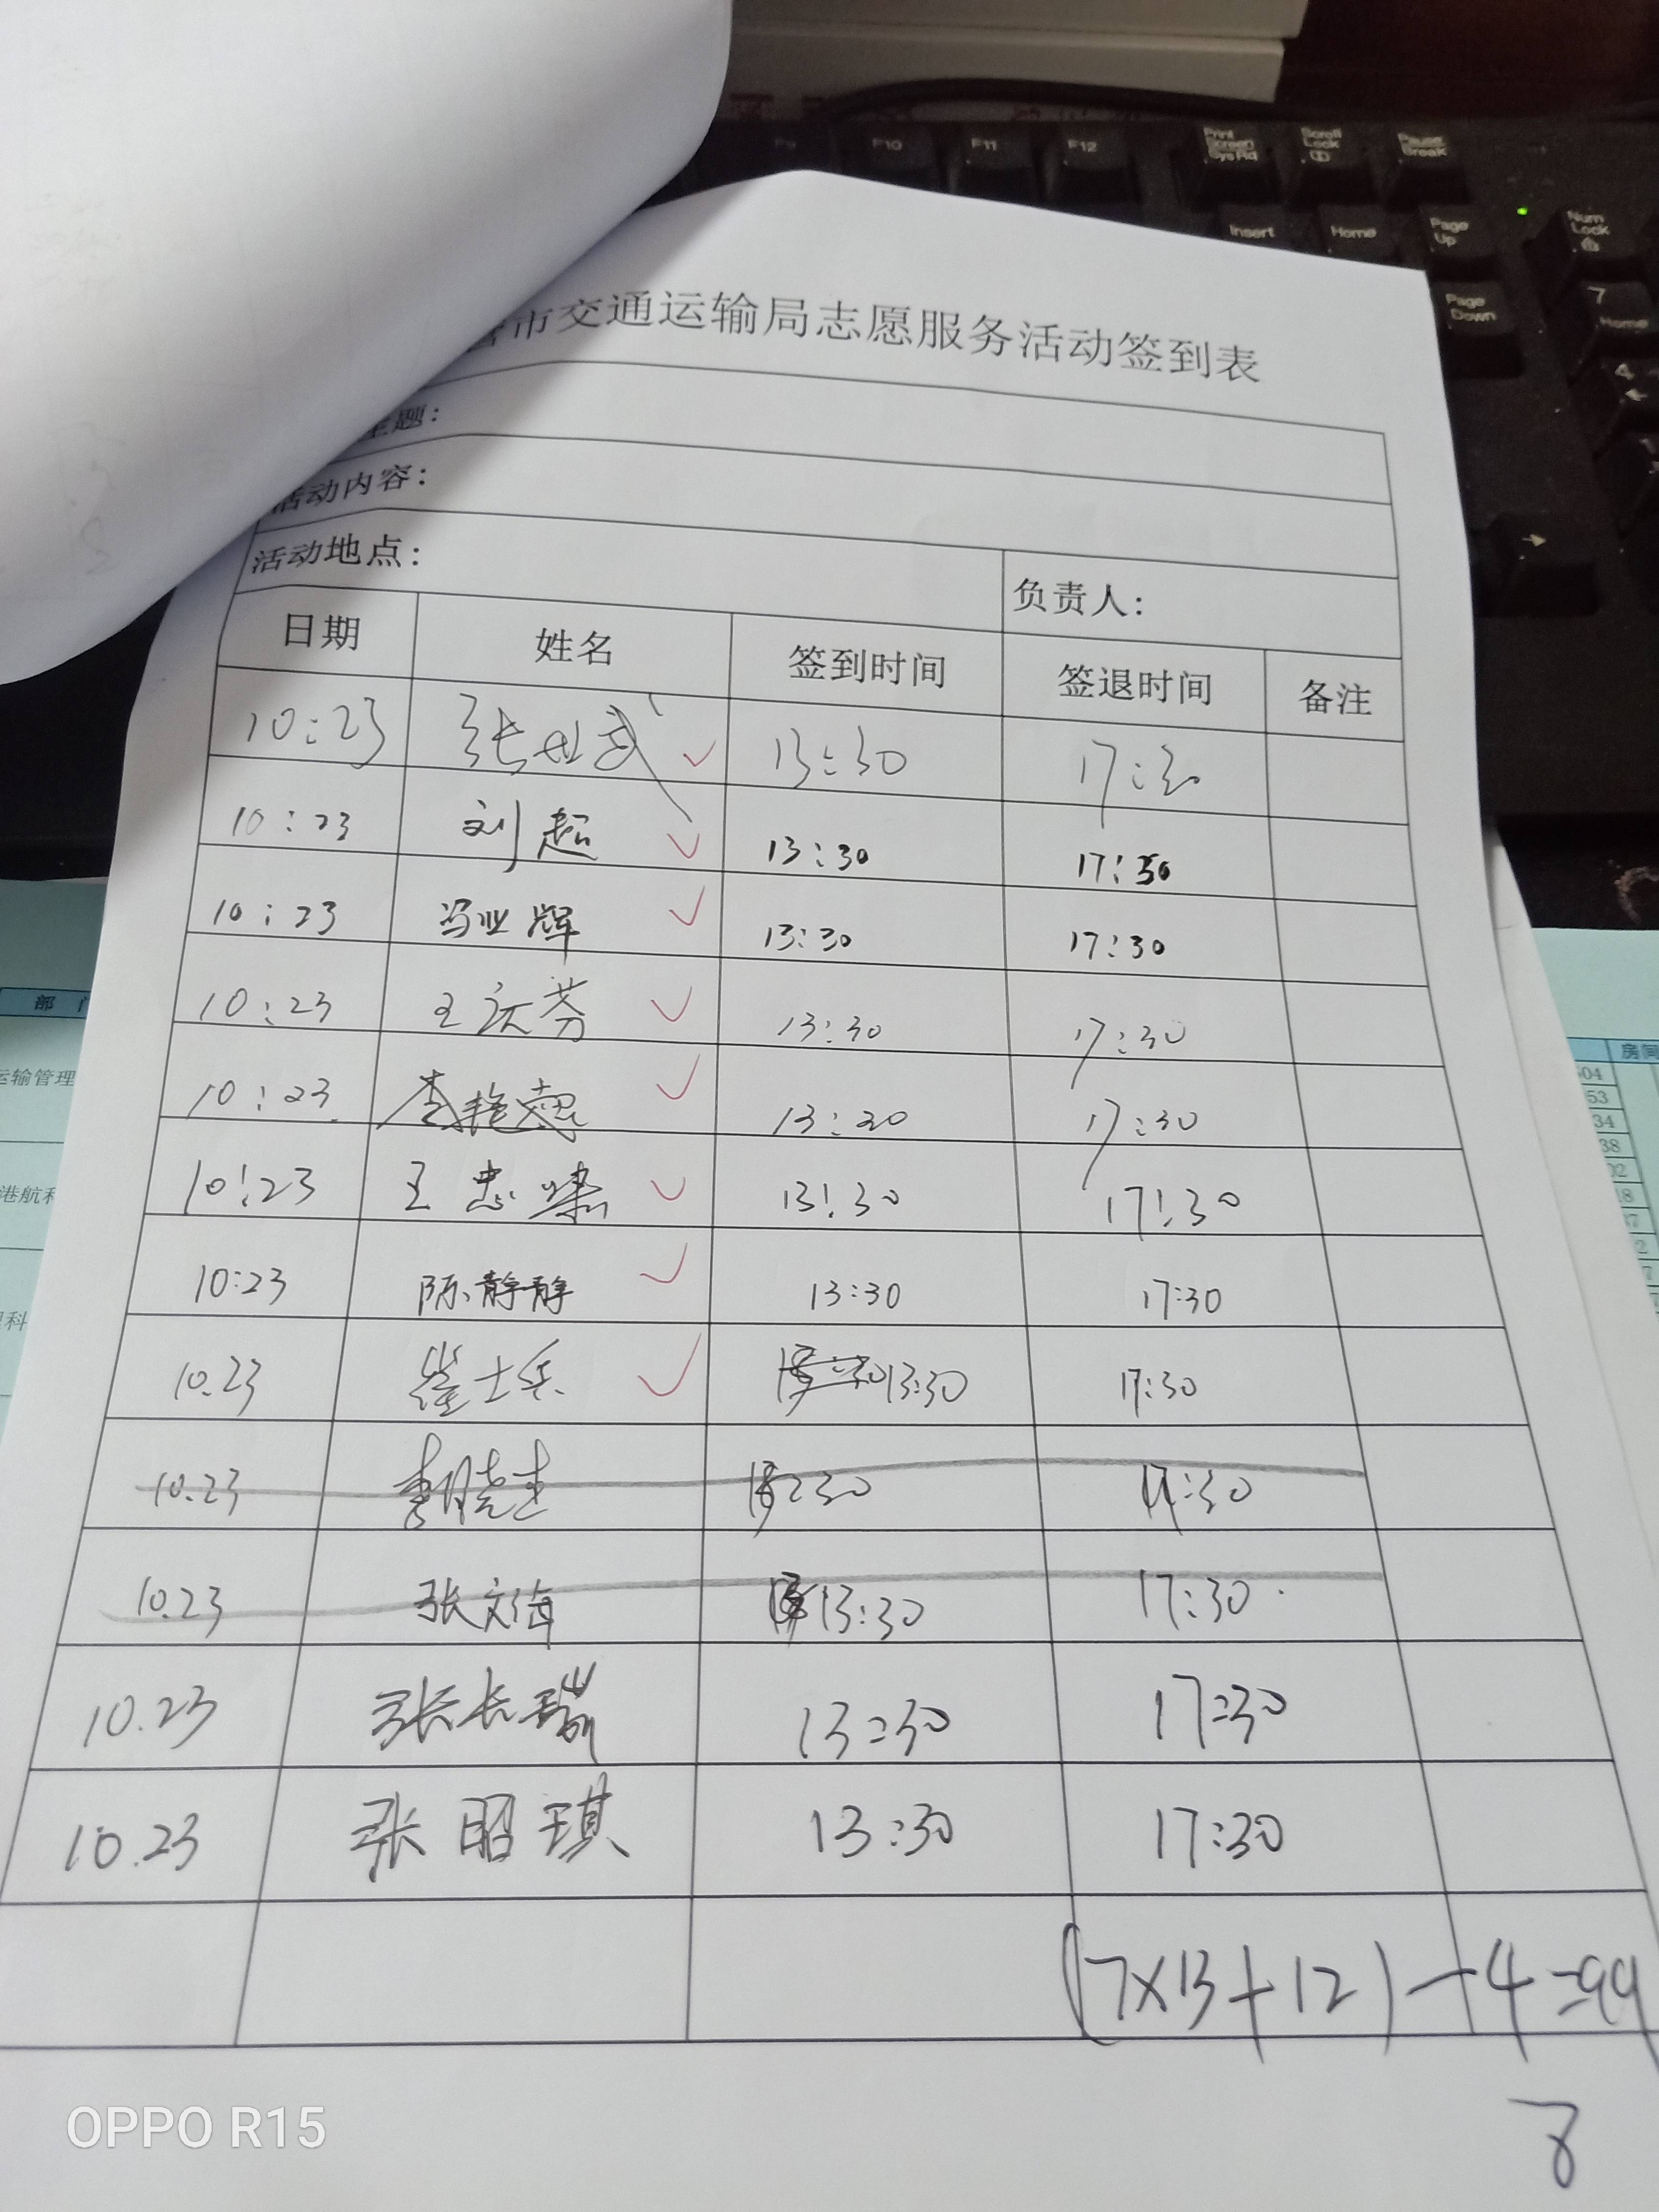 F10 F11 F12 Print Screen Sys Rq Scroll Lock Pause Break
Insert Home Page Up Num Lock
Page Down 7 Home
4
市交通运输局志愿服务活动签到表
主题：
活动内容：
活动地点： 负责人：
日期 姓名 签到时间 签退时间 备注
10:23 张 武 13:30 17:30
10:23 刘超 13:30 17:30
10:23 冯业辉 13:30 17:30
10:23 王 芬 13:30 17:30
10:23 李艳 13:30 17:30
10:23 王忠 13:30 17:30
10:23 陈静静 13:30 17:30
10.23 崔士兵 13:30 17:30
10.23 李晓 :30 17:30
10.23 张文海 13:30 17:30
10.23 张长瑞 13:30 17:30
10.23 张昭琪 13:30 17:30
(7×13+12)-4=99
8
部
运输管理
港航科
理科
房间
504
53
34
38
02
18
37
OPPO R15